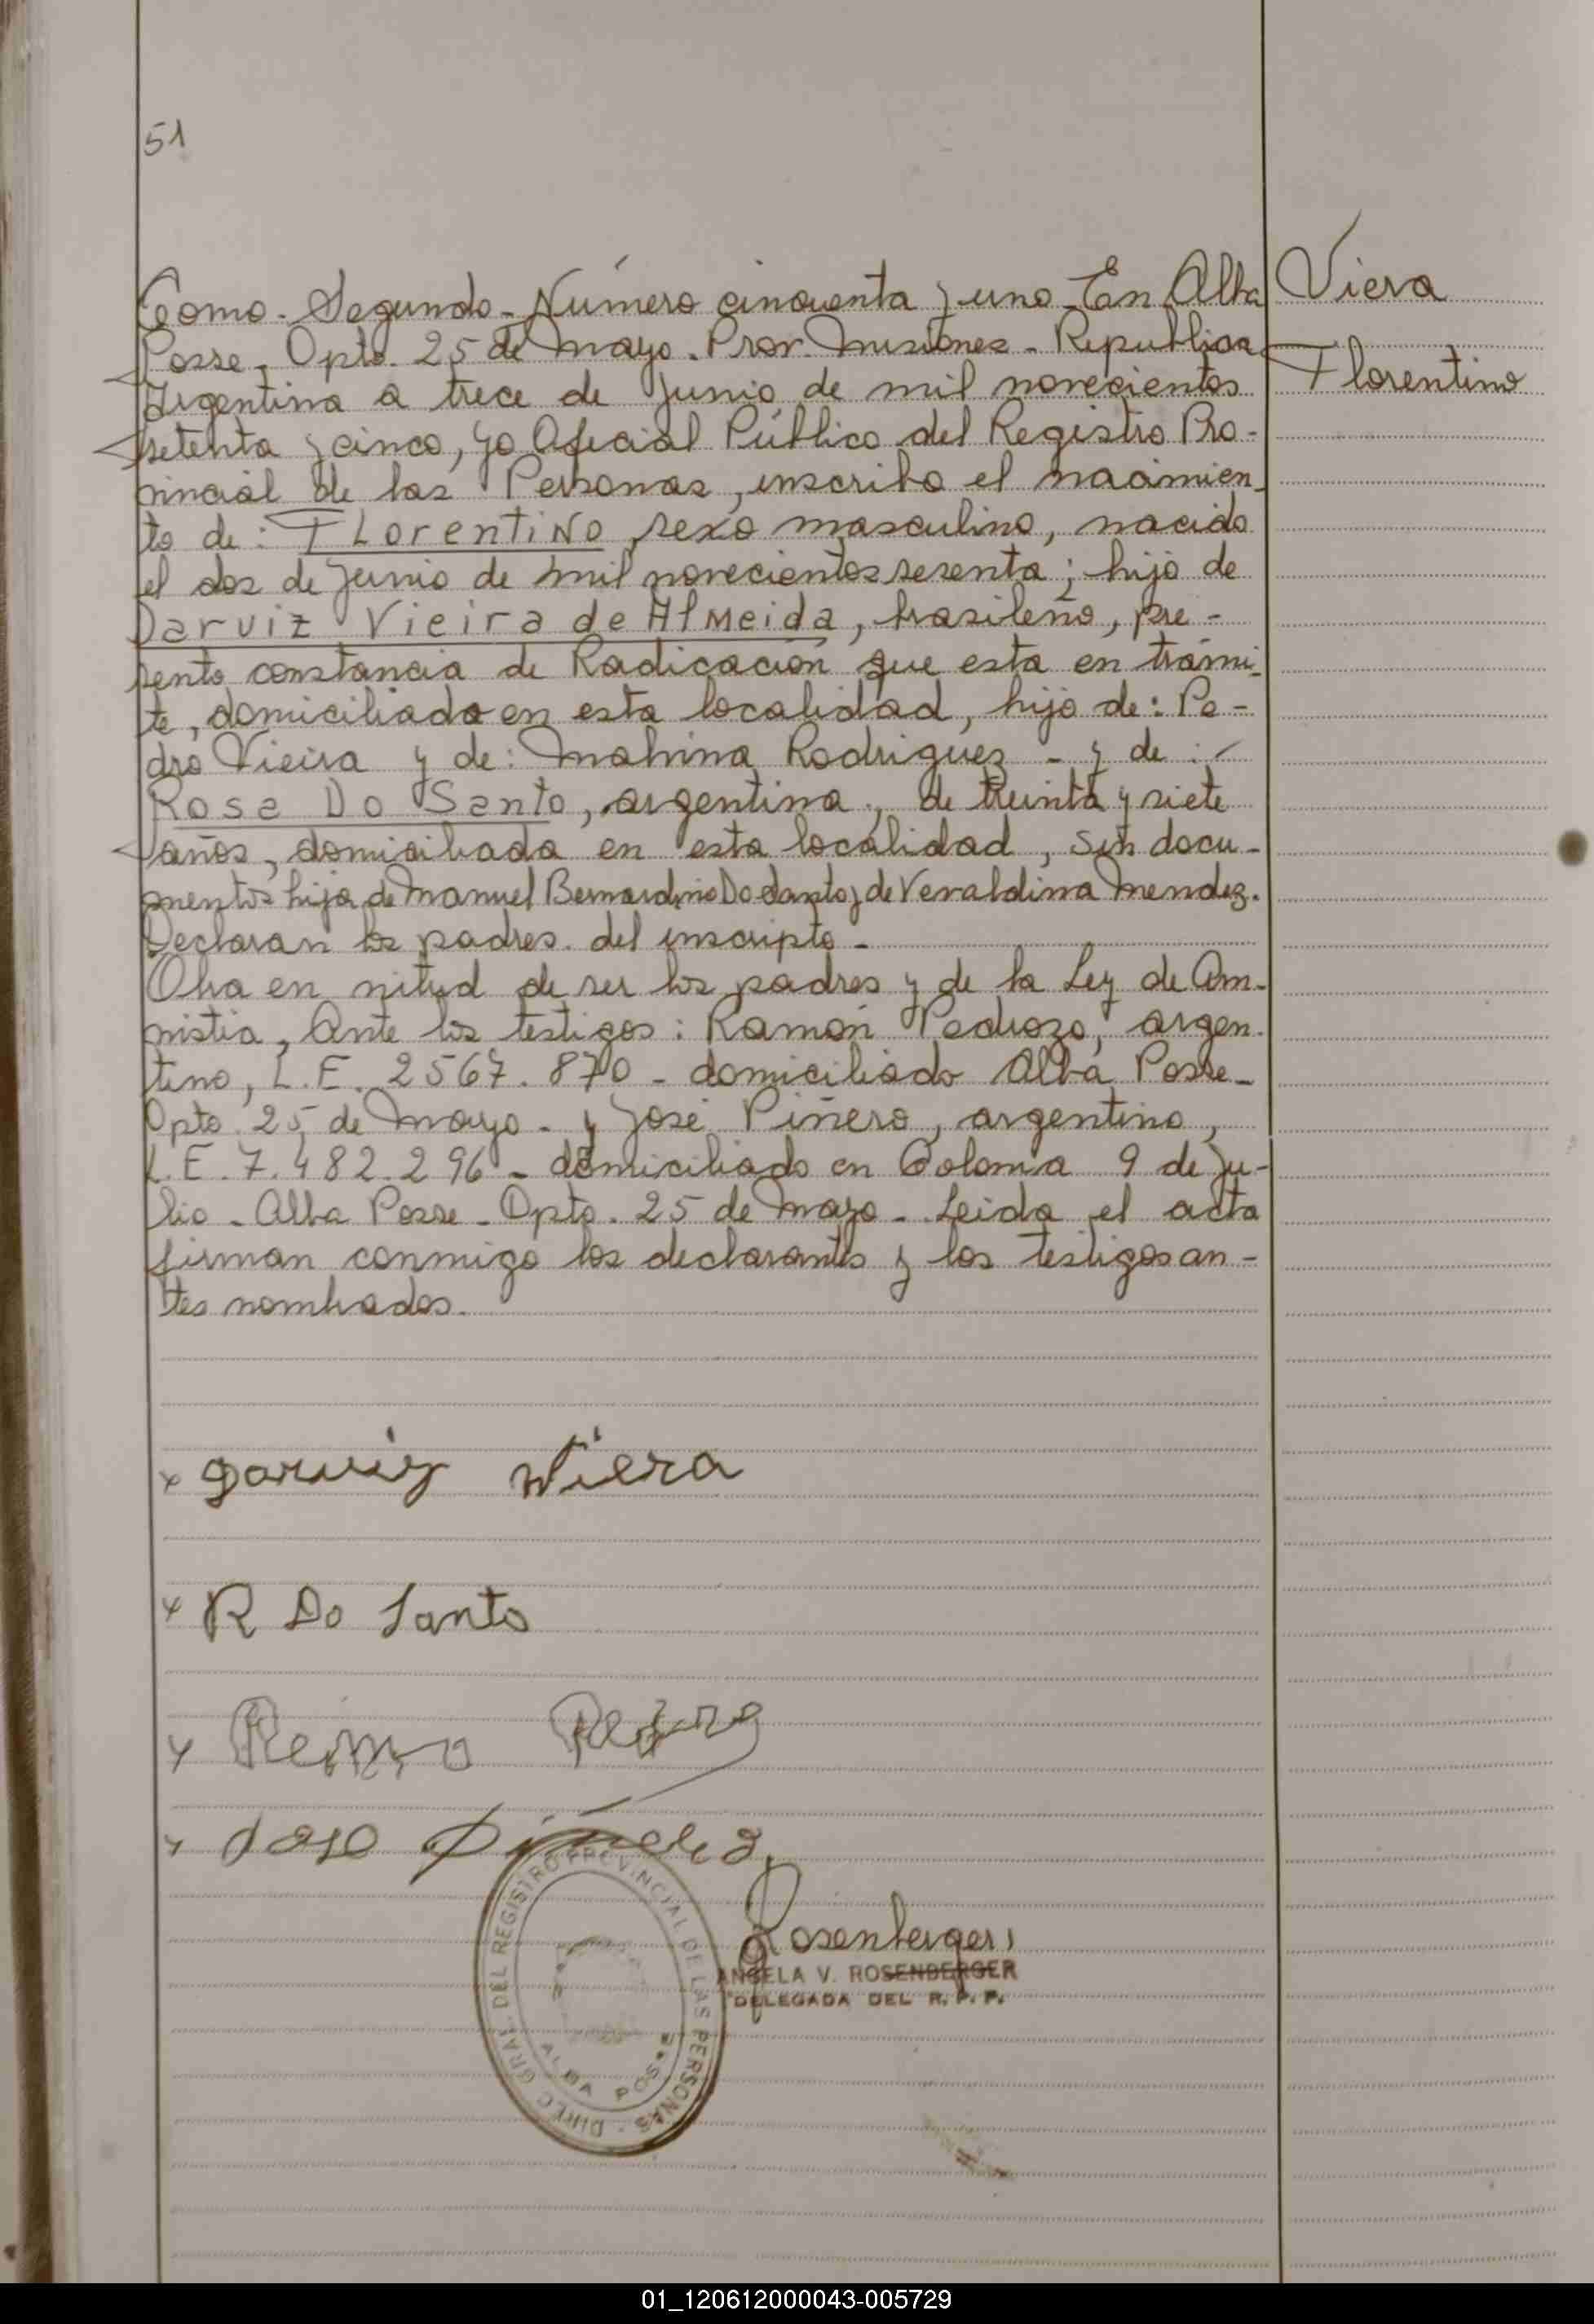 51
Tomo - Segundo - Número cincuenta y uno - En Alba
Posse - Dpto. 25 de Mayo - Prov. Misiones - Republica
Argentina a trece de Junio de mil novecientos
setenta y cinco, yo Oficial Público del Registro Pro-
vincial de las Personas, inscribo el nacimien-
to de: FLorentiNo, sexo masculino, nacido
el dos de Junio de mil novecientos sesenta; hijo de
Darviz Vieira de Almeida, brasileño, pre-
sento constancia de Radicación que esta en trámi-
te, domiciliado en esta localidad, hijo de: Pe-
dro Vieira y de: Malvina Rodriguez - y de:-
Rosa Do Santo, argentina, de treinta y siete
años, domiciliada en esta localidad, sin docu-
mentos hija de Manuel Bernardino Do Santo y de Veraldina Mendez.
Declaran los padres del inscripto -
Obra en virtud de ser los padres y de la Ley de Am-
nistia, Ante los testigos: Ramón Pedrozo, argen-
tino, L.E. 2567.870 - domiciliado Alba Posse -
Dpto. 25 de Mayo - y José Piñero, argentino,
L.E. 7.482.296 - domiciliado en Colonia 9 de Ju-
lio - Alba Posse - Dpto. 25 de Mayo - Leida el acta
firman conmigo los declarantes y los testigos an-
tes nombrados.
Viera
Florentino
x Darviz Viera
x R Do Santo
x
x
Rosenberger
ANGELA V. ROSENBERGER
DELEGADA DEL R. P. P.
DIREC. GRAL. DEL REGISTRO PROVINCIAL DE LAS PERSONAS -
ALBA POSSE
01_120612000043-005729